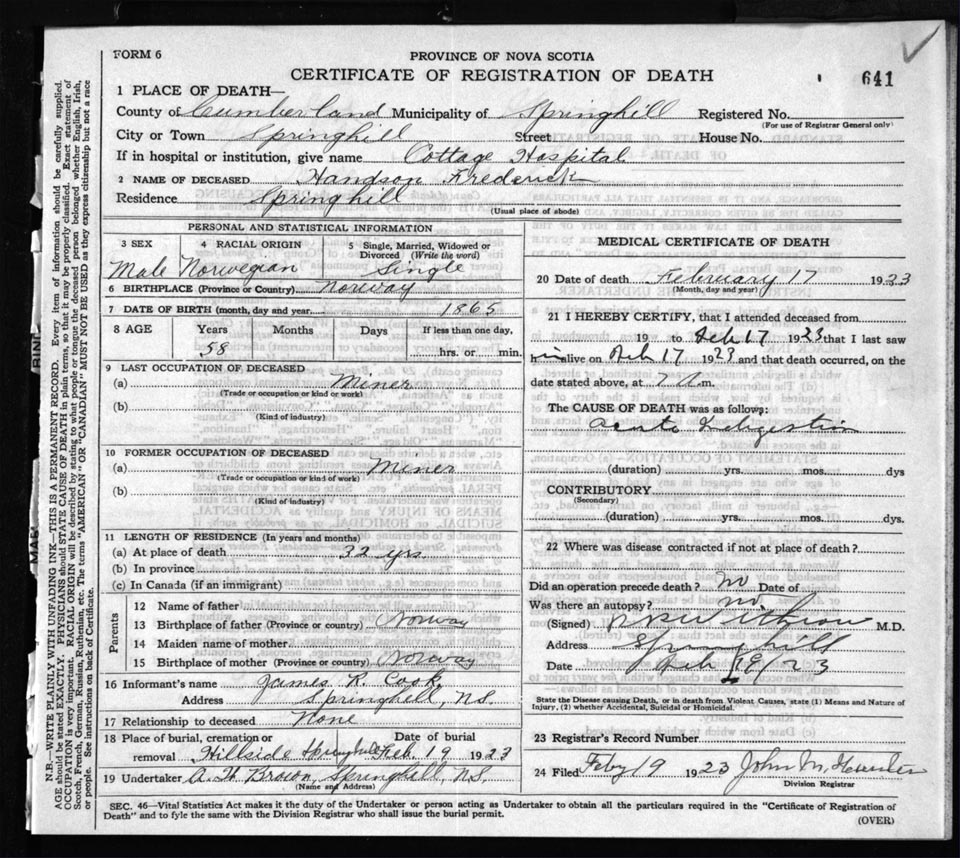 FORM 6
PROVINCE OF NOVA SCOTIA
CERTIFICATE OF REGISTRATION OF DEATH
641
1 PLACE OF DEATH—
County of Cumberland Municipality of Springhill Registered No.
(For use of Registrar General only)
City or Town Springhill Street House No.
If in hospital or institution, give name Cottage Hospital
2 NAME OF DECEASED Handson Frederick
Residence Springhill
(Usual place of abode)
PERSONAL AND STATISTICAL INFORMATION
3 SEX 4 RACIAL ORIGIN 5 Single, Married, Widowed or Divorced (Write the word)
Male Norwegian Single
6 BIRTHPLACE (Province or Country) Norway
7 DATE OF BIRTH (month, day and year) 1865
8 AGE Years Months Days If less than one day,
58 hrs. or min.
9 LAST OCCUPATION OF DECEASED
(a) Miner
(Trade or occupation or kind or work)
(b)
(Kind of industry)
10 FORMER OCCUPATION OF DECEASED
(a) Miner
(Trade or occupation or kind or work)
(b)
(Kind of industry)
11 LENGTH OF RESIDENCE (In years and months)
(a) At place of death 32 yrs
(b) In province
(c) In Canada (if an immigrant)
Parents
12 Name of father
13 Birthplace of father (Province or country) Norway
14 Maiden name of mother
15 Birthplace of mother (Province or country) Norway
16 Informant's name James R. Cook
Address Springhill, N.S.
17 Relationship to deceased None
18 Place of burial, cremation or removal Date of burial
Hillside Springhill Feb. 19 1923
19 Undertaker A. H. Brown, Springhill, N.S.
(Name and Address)
MEDICAL CERTIFICATE OF DEATH
20 Date of death February 17 1923
(Month, day and year)
21 I HEREBY CERTIFY, that I attended deceased from
19 to Feb 17 1923 that I last saw
him alive on Feb 17 1923 and that death occurred, on the
date stated above, at 7 A.m.
The CAUSE OF DEATH was as follows:
acute Indigestion
(duration) yrs. mos. dys
CONTRIBUTORY
(Secondary)
(duration) yrs. mos. dys.
22 Where was disease contracted if not at place of death?
Did an operation precede death? no Date of
Was there an autopsy? no
(Signed) M.D.
Address Springhill
Date Feb 18/23
State the Disease causing Death, or in death from Violent Causes, state (1) Means and Nature of
Injury, (2) whether Accidental, Suicidal or Homicidal.
23 Registrar's Record Number
24 Filed Feby 19 1923 John M.
Division Registrar
SEC. 46—Vital Statistics Act makes it the duty of the Undertaker or person acting as Undertaker to obtain all the particulars required in the "Certificate of Registration of
Death" and to fyle the same with the Division Registrar who shall issue the burial permit.
(OVER)
N.B.—WRITE PLAINLY WITH UNFADING INK—THIS IS A PERMANENT RECORD. Every item of information should be carefully supplied.
AGE should be stated EXACTLY. PHYSICIANS should STATE CAUSE OF DEATH in plain terms, so that it may be properly classified. Exact statement of
OCCUPATION is very important. RACIAL ORIGIN will be described by stating to what people or tongue the deceased person belonged whether English, Irish,
Scotch, French, German, Russian, Ruthenian, etc. The terms "AMERICAN" or "CANADIAN" MUST NOT BE USED as they express citizenship but not a race
or people. See instructions on back of Certificate.